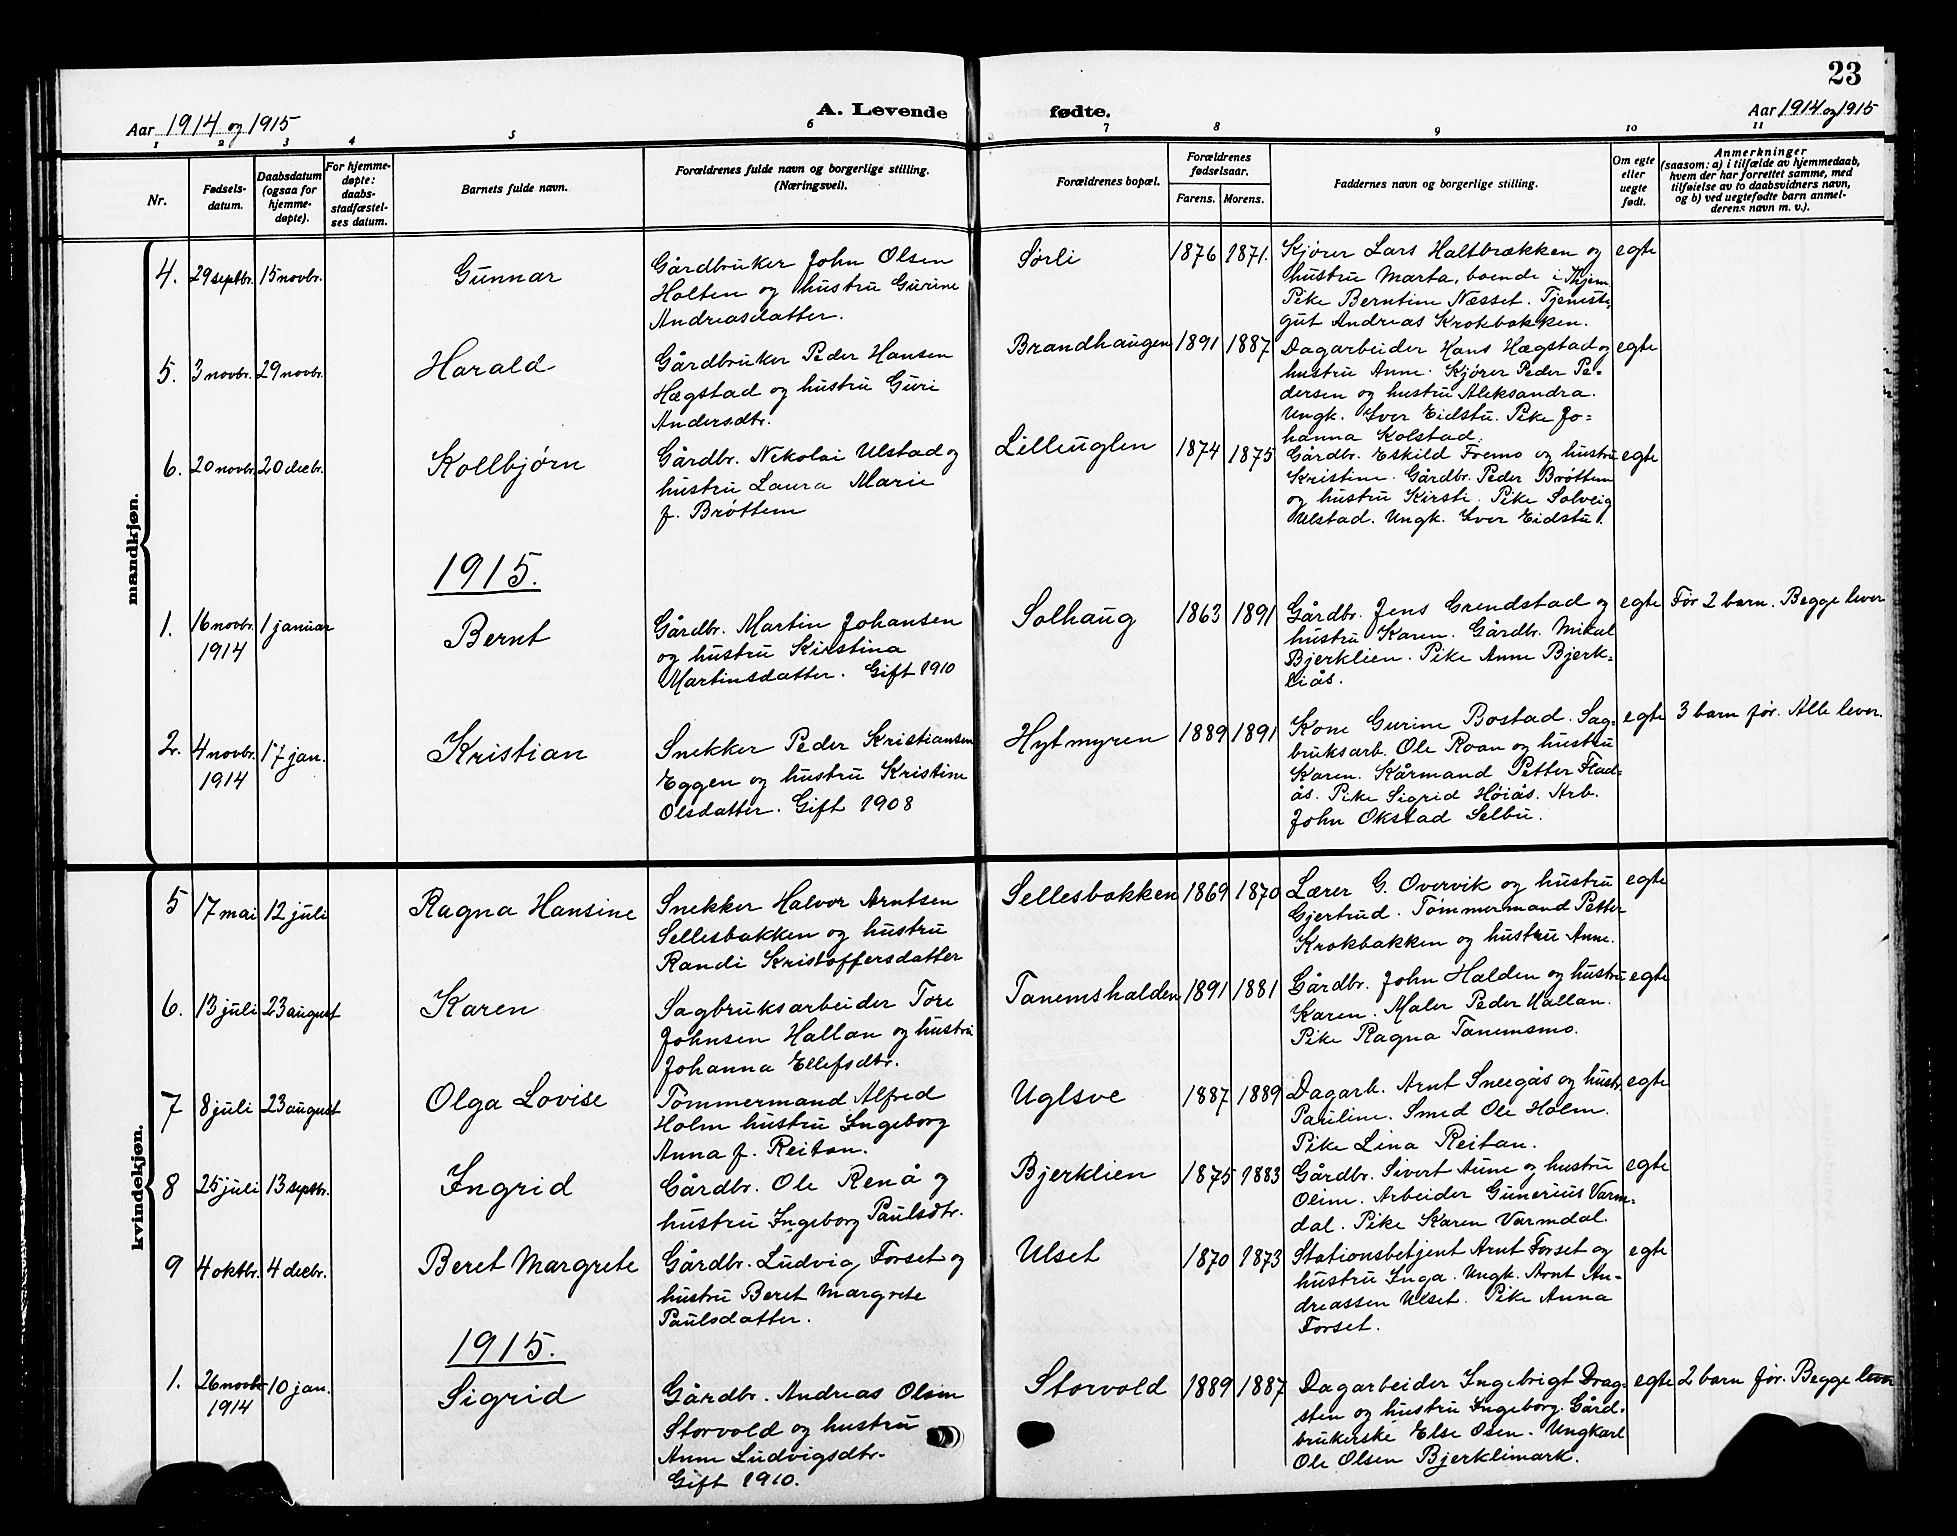 23
A. Levende fødte.
Aar 1914 og 1915
Aar 1914 og 1915
1 2 3 4 5 6 7 8 9 10 11
Nr.
Fødsels-
datum.
Daabsdatum
(ogsaa for
hjemme-
døpte).
For hjemme-
døpte:
daabs-
stadfæstel-
ses datum.
Barnets fulde navn.
Forældrenes fulde navn og borgerlige stilling.
(Næringsvei).
Forældrenes bopæl.
Forældrenes
fødselsaar.
Farens. Morens.
Faddernes navn og borgerlige stilling.
Om egte
eller
uegte
født.
Anmerkninger
(saasom: a) i tilfælde av hjemmedaab,
hvem der har forrettet samme, med
tilføielse av to daabsvidners navn,
og b) ved uegtefødte barn anmel-
derens navn m. v.).
mandkjøn.
4. 29 septbr. 15 novbr. Gunnar
Gårdbruker John Olsen
Holten og hustru Gurine
Andreasdatter.
Sørli 1876 1871.
Kjører Lars Haltbrækken og
hustru Marta, boende i Thjem
Pike Berntine Næsset. Tjeneste-
gut Andreas Krokbakken.
egte
5. 3 novbr. 29 novbr. Harald
Gårdbruker Peder Hansen
Hægstad og hustru Guri
Andersdtr.
Brandhaugen 1891 1887
Dagarbeider Hans Hægstad og
hustru Anne. Kjører Peder Pe-
dersen og hustru Aleksandra.
Ungk. Iver Eidstu. Pike Jo-
hanna Kolstad.
egte
6. 20 novbr. 20 decbr. Kollbjørn
Gårdbr. Nikolai Ulstad og
hustru Laura Marie
f. Brøttem
Lilleuglen 1874 1875
Gårdbr. Eskild Fremo og hustru
Kristine. Gårdbr. Peder Brøttem
og hustru Kirsti. Pike Solveig
Ulstad. Ungk. Iver Eidstu.
egte
1915.
1. 16 novbr. 1914 1 januar Bernt
Gårdbr. Martin Johansen
og hustru Kirstina
Martinsdatter. Gift 1910
Solhaug 1863 1891
Gårdbr. Jens Grendstad og
hustru Karen. Gårdbr. Mikal
Bjerklien. Pike Anne Bjerk-
liås.
egte
Før 2 barn. Begge lever
2. 4 novbr. 1914 17 jan. Kristian
Snekker Peder Kristiansen
Eggen og hustru Kristine
Olsdatter. Gift 1908
Hytmyren 1889 1891
Kone Gurine Bostad. Sag-
bruksarb. Ole Roan og hustru
Karen. Kårmand Petter Flad-
ås. Pike Sigrid Høiås. Arb.
John Okstad Selbu.
egte
3 barn før. Alle lever.
kvindekjøn.
5 17 mai 12 juli Ragna Hansine
Snekker Halvor Arntsen
Sellesbakken og hustru
Randi Kristoffersdatter
Sellesbakken 1869 1870
Lærer G. Overvik og hustru
Gjertrud. Tømmermand Petter
Krokbakken og hustru Anne.
egte
6. 13 juli 23 august Karen
Sagbruksarbeider Tore
Johnsen Hallan og hustru
Johanna Ellefsdtr.
Tanemshalden 1891 1881
Gårdbr. John Halden og hustru
Karen. Maler Peder Hallan.
Pike Ragna Tanemsmo.
egte
7 8 juli 23 august Olga Lovise
Tømmermand Alfred
Holm hustru Ingeborg
Anna f. Reitan.
Uglsve 1887 1889
Dagarb. Arnt Sneegås og hustr.
Pauline. Smed Ole Holm.
Pike Lina Reitan.
egte
8 25 juli 13 septbr. Ingrid
Gårdbr. Ole Renå og
hustru Ingeborg Paulsdtr.
Bjerklien 1875 1883
Gårdbr. Sivert Aune og hustru
Oline. Arbeider Gunerius Varm-
dal. Pike Karen Varmdal.
egte
9 4 oktbr. 4 decbr. Beret Margrete
Gårdbr. Ludvig Forset og
hustru Beret Margrete
Paulsdatter.
Ulset 1870 1873
Stationsbetjent Arnt Forset og
hustru Inga. Ungk. Arnt An-
dreassen Ulset. Pike Anna
Forset.
egte
1915.
1. 26 novbr 1914 10 jan. Sigrid
Gårdbr. Andreas Olsen
Storvold og hustru
Anne Ludvigsdtr.
Gift 1910.
Storvold 1889 1887
Dagarbeider Ingebrigt Drag-
sten og hustru Ingeborg. Gård-
brukerske Else Osen. Ungkarl
Ole Olsen Bjerklimark.
egte
2 barn før. Begge lever